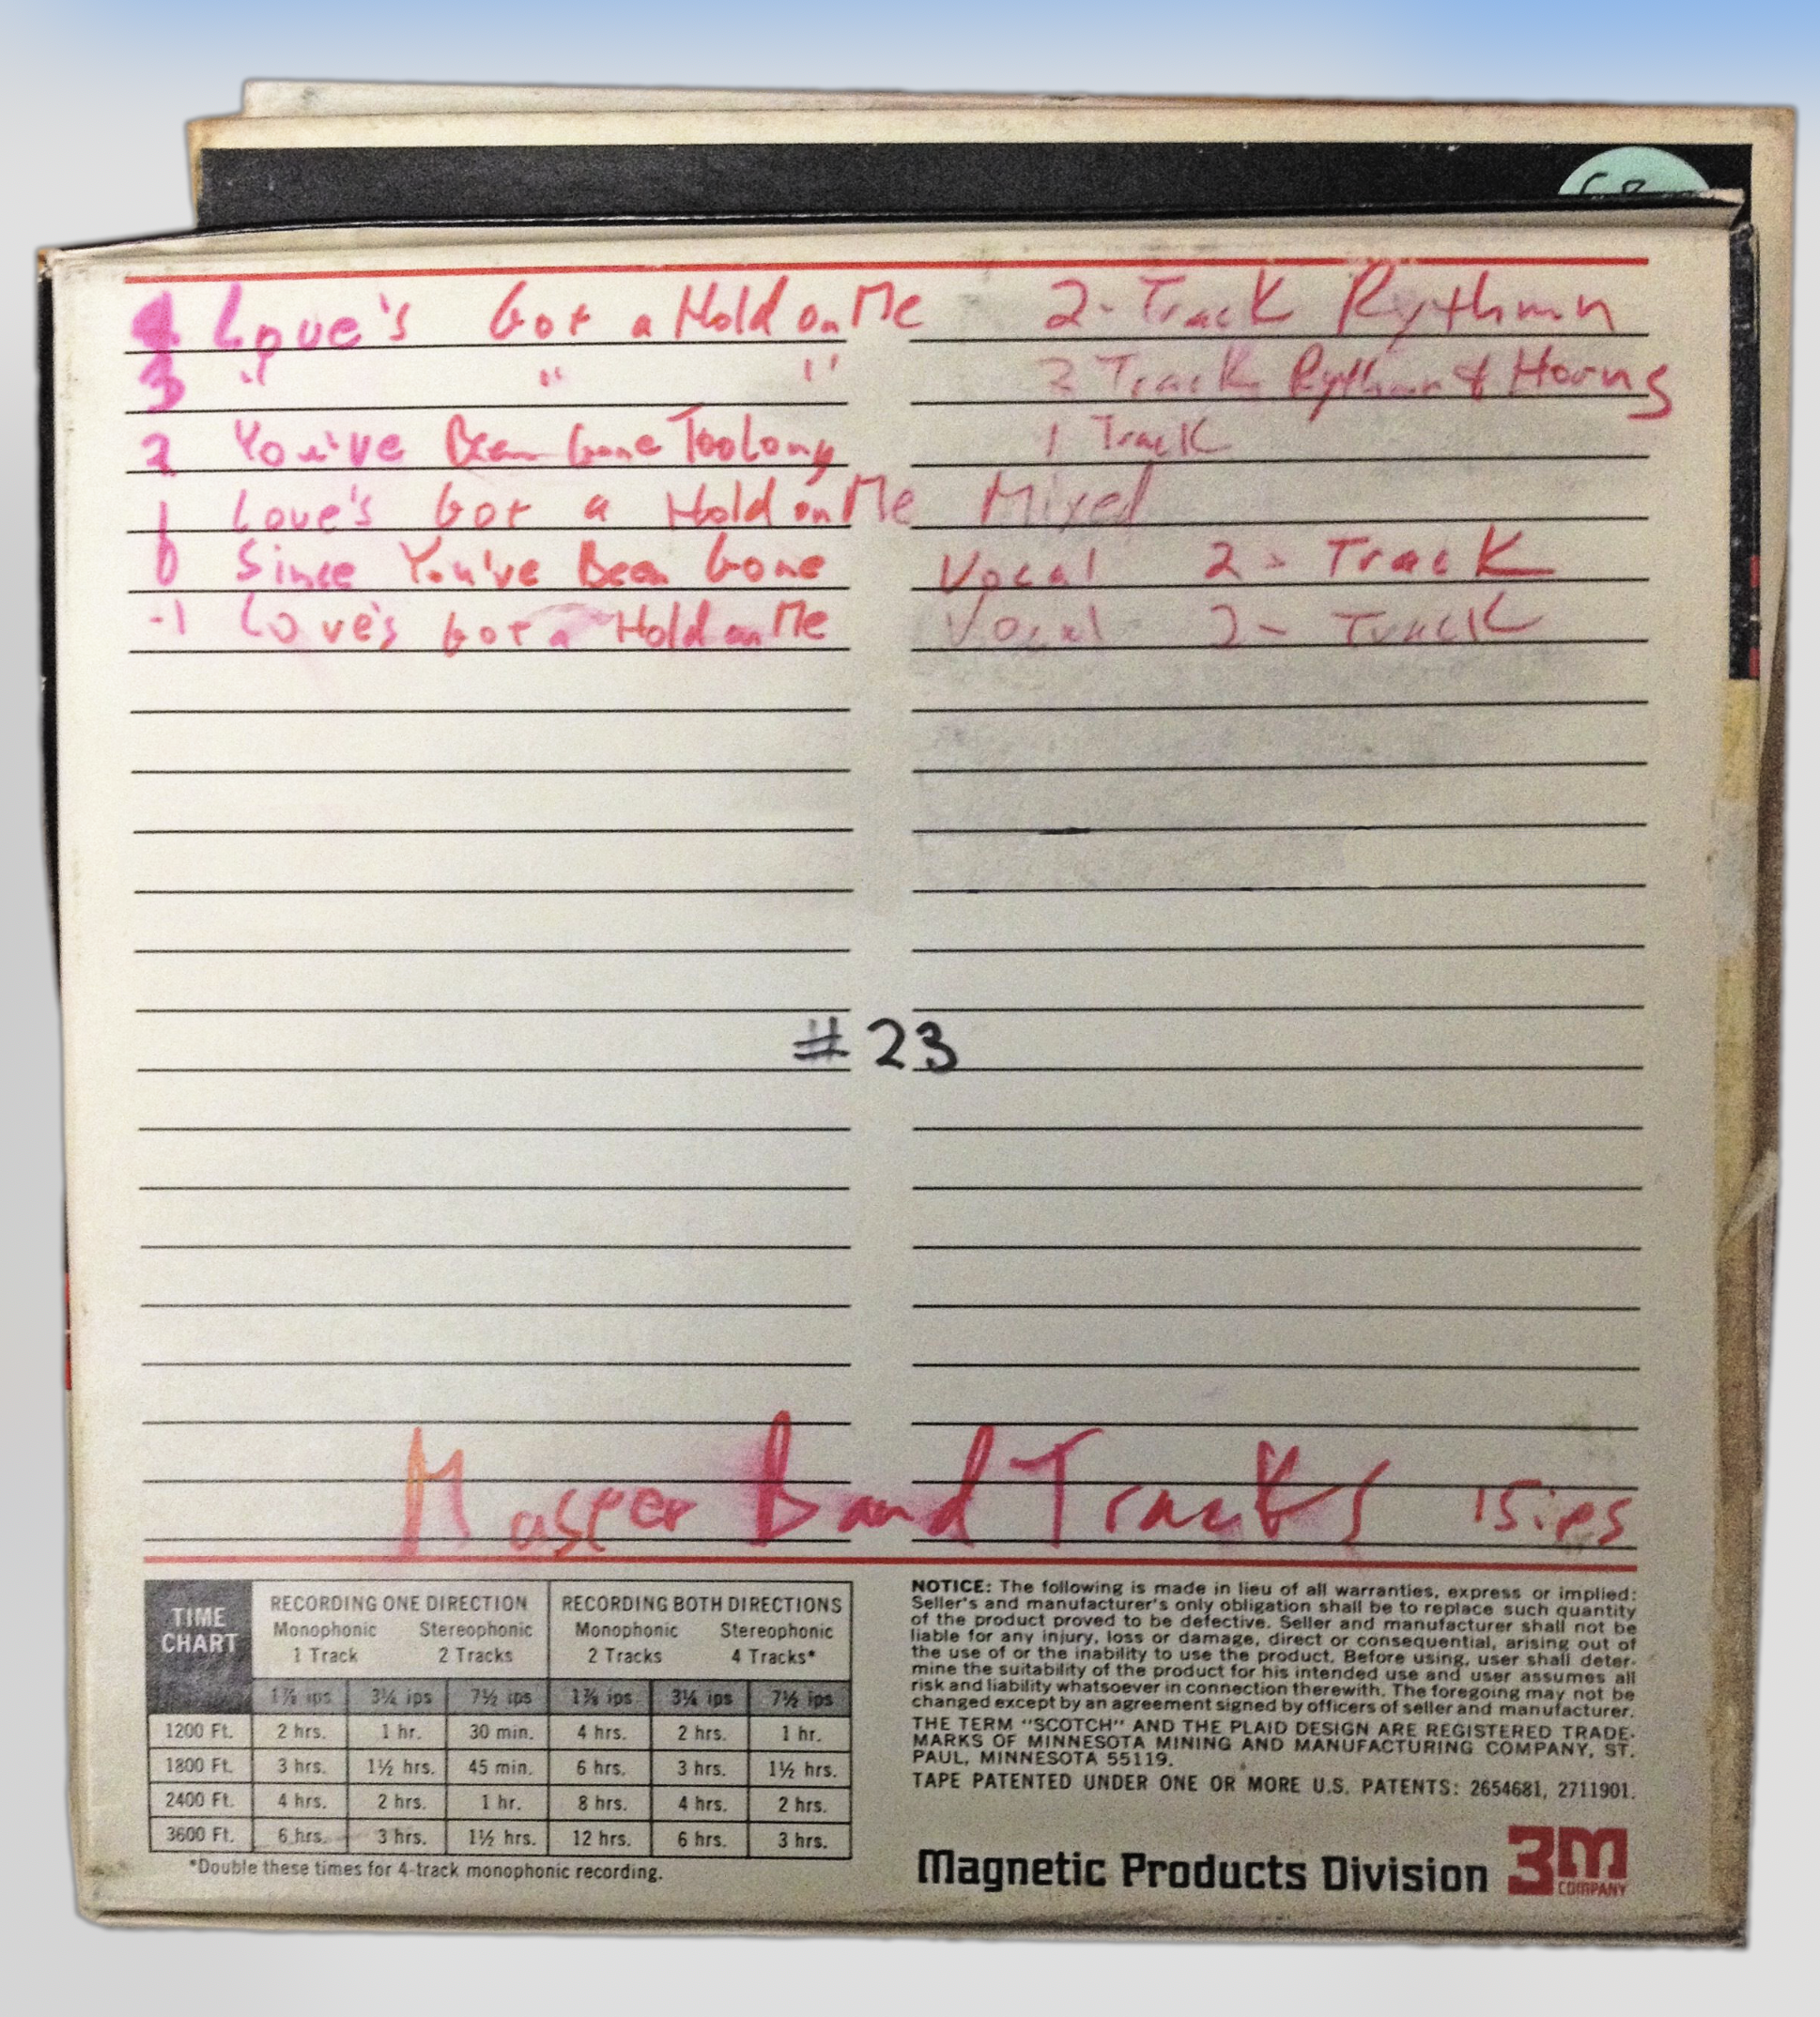 4 Love's Got a Hold on Me 2-Track Rythmn
3 " " " 2 Track Rythmn & Horns
2 You've Been Gone Too Long 1 Track
1 Love's Got a Hold on Me Mixed
0 Since You've Been Gone Vocal 2-Track
-1 Love's Got a Hold on Me Vocal 2-Track
#23
Master Band Tracks 15ips
TIME CHART
RECORDING ONE DIRECTION RECORDING BOTH DIRECTIONS
Monophonic Stereophonic Monophonic Stereophonic
1 Track 2 Tracks 2 Tracks 4 Tracks*
1⅞ ips 3¾ ips 7½ ips 1⅞ ips 3¾ ips 7½ ips
1200 Ft. 2 hrs. 1 hr. 30 min. 4 hrs. 2 hrs. 1 hr.
1800 Ft. 3 hrs. 1½ hrs. 45 min. 6 hrs. 3 hrs. 1½ hrs.
2400 Ft. 4 hrs. 2 hrs. 1 hr. 8 hrs. 4 hrs. 2 hrs.
3600 Ft. 6 hrs. 3 hrs. 1½ hrs. 12 hrs. 6 hrs. 3 hrs.
*Double these times for 4-track monophonic recording.
NOTICE: The following is made in lieu of all warranties, express or implied:
Seller's and manufacturer's only obligation shall be to replace such quantity
of the product proved to be defective. Seller and manufacturer shall not be
liable for any injury, loss or damage, direct or consequential, arising out of
the use of or the inability to use the product. Before using, user shall deter-
mine the suitability of the product for his intended use and user assumes all
risk and liability whatsoever in connection therewith. The foregoing may not be
changed except by an agreement signed by officers of seller and manufacturer.
THE TERM "SCOTCH" AND THE PLAID DESIGN ARE REGISTERED TRADE-
MARKS OF MINNESOTA MINING AND MANUFACTURING COMPANY, ST.
PAUL, MINNESOTA 55119.
TAPE PATENTED UNDER ONE OR MORE U.S. PATENTS: 2654681, 2711901.
Magnetic Products Division 3M COMPANY